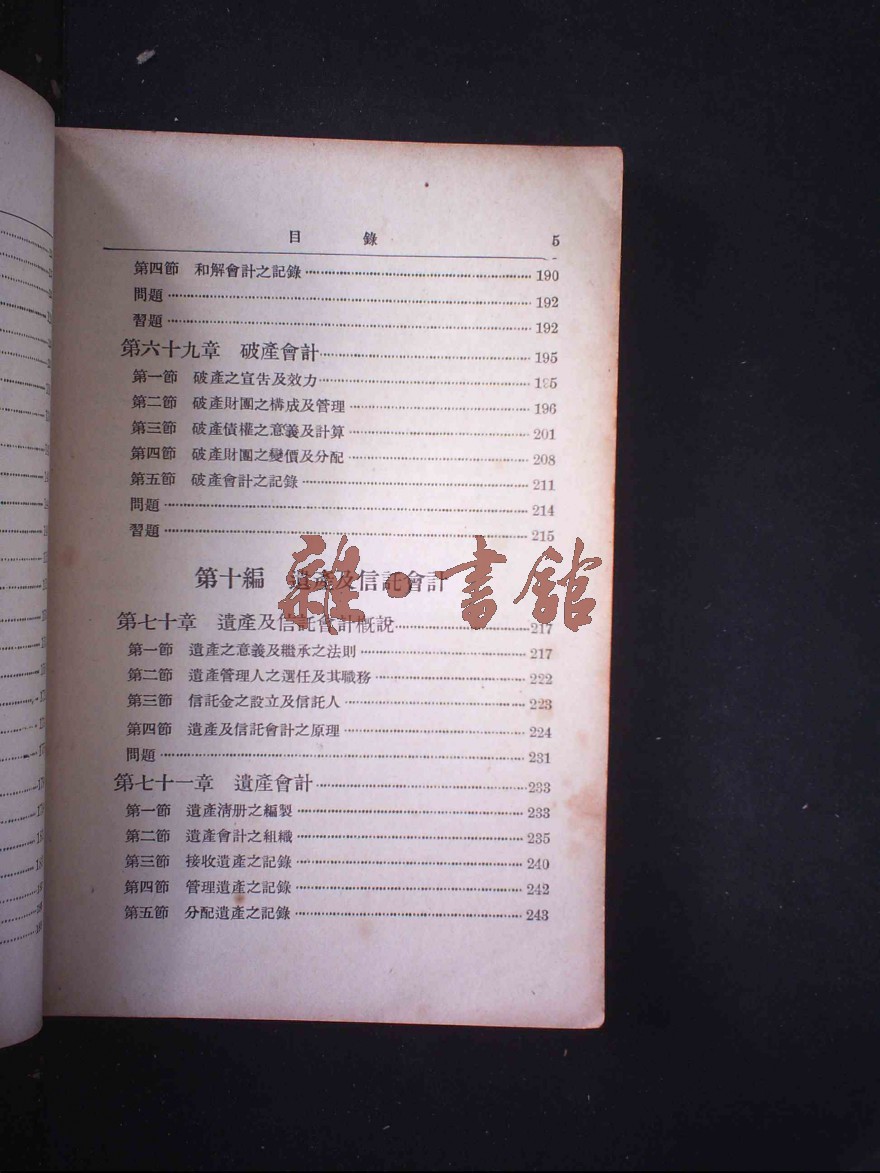 目 錄 5
第四節 和解會計之記錄 190
問題 192
習題 192
第六十九章 破產會計 195
第一節 破產之宣告及效力 195
第二節 破產財團之構成及管理 196
第三節 破產債權之意義及計算 201
第四節 破產財團之變價及分配 208
第五節 破產會計之記錄 211
問題 214
習題 215
第十編 遺產及信託會計
雜·書館
第七十章 遺產及信託會計概說 217
第一節 遺產之意義及繼承之法則 217
第二節 遺產管理人之選任及其職務 222
第三節 信託金之設立及信託人 223
第四節 遺產及信託會計之原理 224
問題 231
第七十一章 遺產會計 233
第一節 遺產清册之編製 233
第二節 遺產會計之組織 235
第三節 接收遺產之記錄 240
第四節 管理遺產之記錄 242
第五節 分配遺產之記錄 243